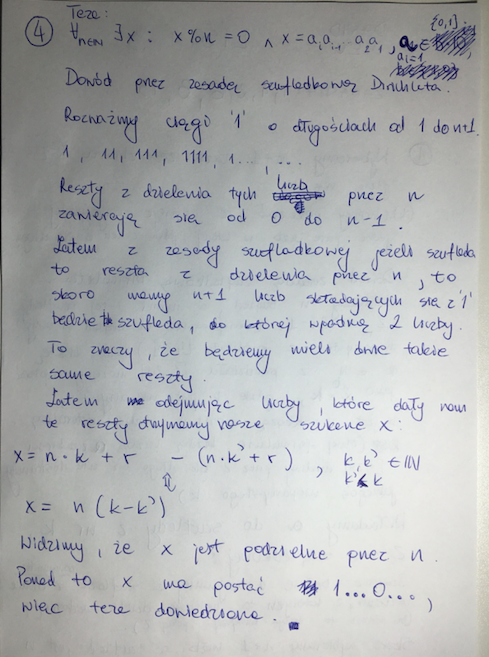 Teza:
④ ∀n∈N ∃x : x%n = 0 ∧ x = aᵢaᵢ₋₁... a₂a₁, aᵢ ∈ {0,1}
a₁=1
Dowód przez zasadę szufladkową Dirichleta.
Rozważmy ciągi '1' o długościach od 1 do n+1.
1, 11, 111, 1111, 1... , ...
Reszty z dzielenia tych liczb przez n
zawierają się od 0 do n-1.
Zatem z zasady szufladkowej jeżeli szuflada
to reszta z dzielenia przez n, to
skoro mamy n+1 liczb składających się z '1'
będzie szuflada, do której wpadną 2 liczby.
To znaczy, że będziemy mieli dwie takie
same reszty.
Zatem odejmując liczby, które dały nam
te reszty otrzymamy nasze szukane x:
x = n·k + r - (n·k' + r) , k, k' ∈ IN
k' < k
⇕
x = n(k-k')
Widzimy, że x jest podzielne przez n.
Ponad to x ma postać 1...0...,
więc teza dowiedziona.